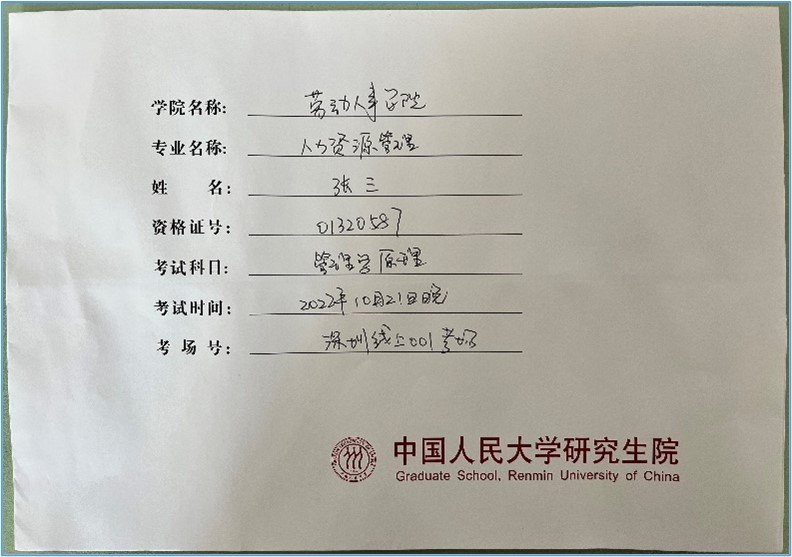 学院名称: 劳动人事学院
专业名称: 人力资源管理
姓 名: 张三
资格证号: 01320587
考试科目: 管理学原理
考试时间: 2022年10月21日晚
考 场 号: 深圳线上001考场
中国人民大学研究生院
Graduate School, Renmin University of China